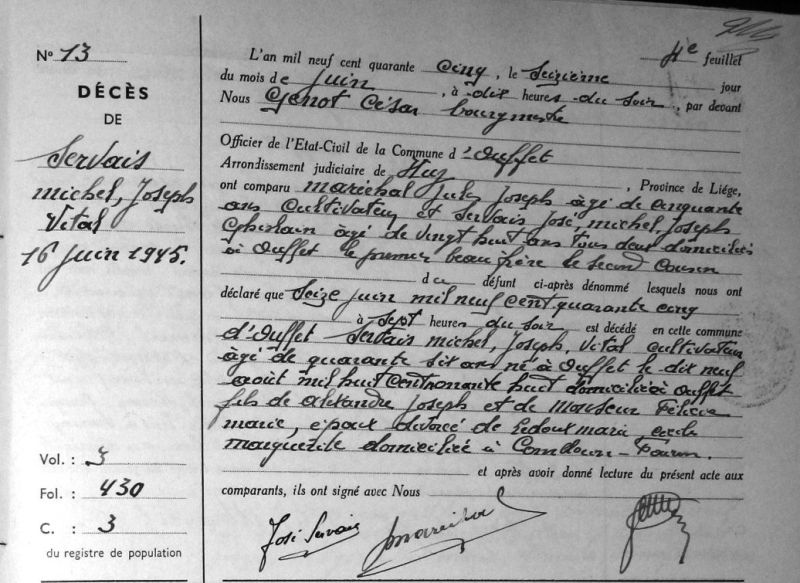 N° 13
DÉCÈS
DE
Servais
Michel, Joseph
Vital
16 Juin 1945.
Vol. : 3
Fol. : 430
C. : 3
du registre de population
4e feuillet
L'an mil neuf cent quarante cinq, le seizième jour
du mois de juin, à dix heures du soir, par devant
Nous Genot César bourgmestre
Officier de l'Etat-Civil de la Commune d'Ouffet
Arrondissement judiciaire de Huy, Province de Liége,
ont comparu Maréchal Jules Joseph âgé de cinquante
ans cultivateur et Servais José, Michel, Joseph
Ghislain âgé de vingt huit ans tous deux domiciliés
à Ouffet le premier beau frère le second cousin
du défunt ci-après dénommé lesquels nous ont
déclaré que seize juin mil neuf cent quarante cinq
à sept heures du soir est décédé en cette commune
d'Ouffet Servais Michel, Joseph, Vital cultivateur
âgé de quarante six ans né à Ouffet le dix neuf
août mil huit cent nonante huit domicilié à Ouffet
fils de Alexandre Joseph et de Félicie
Marie, époux divorcé de Ledoux Marie
Marguerite domiciliée à
et après avoir donné lecture du présent acte aux
comparants, ils ont signé avec Nous
José Servais J Maréchal